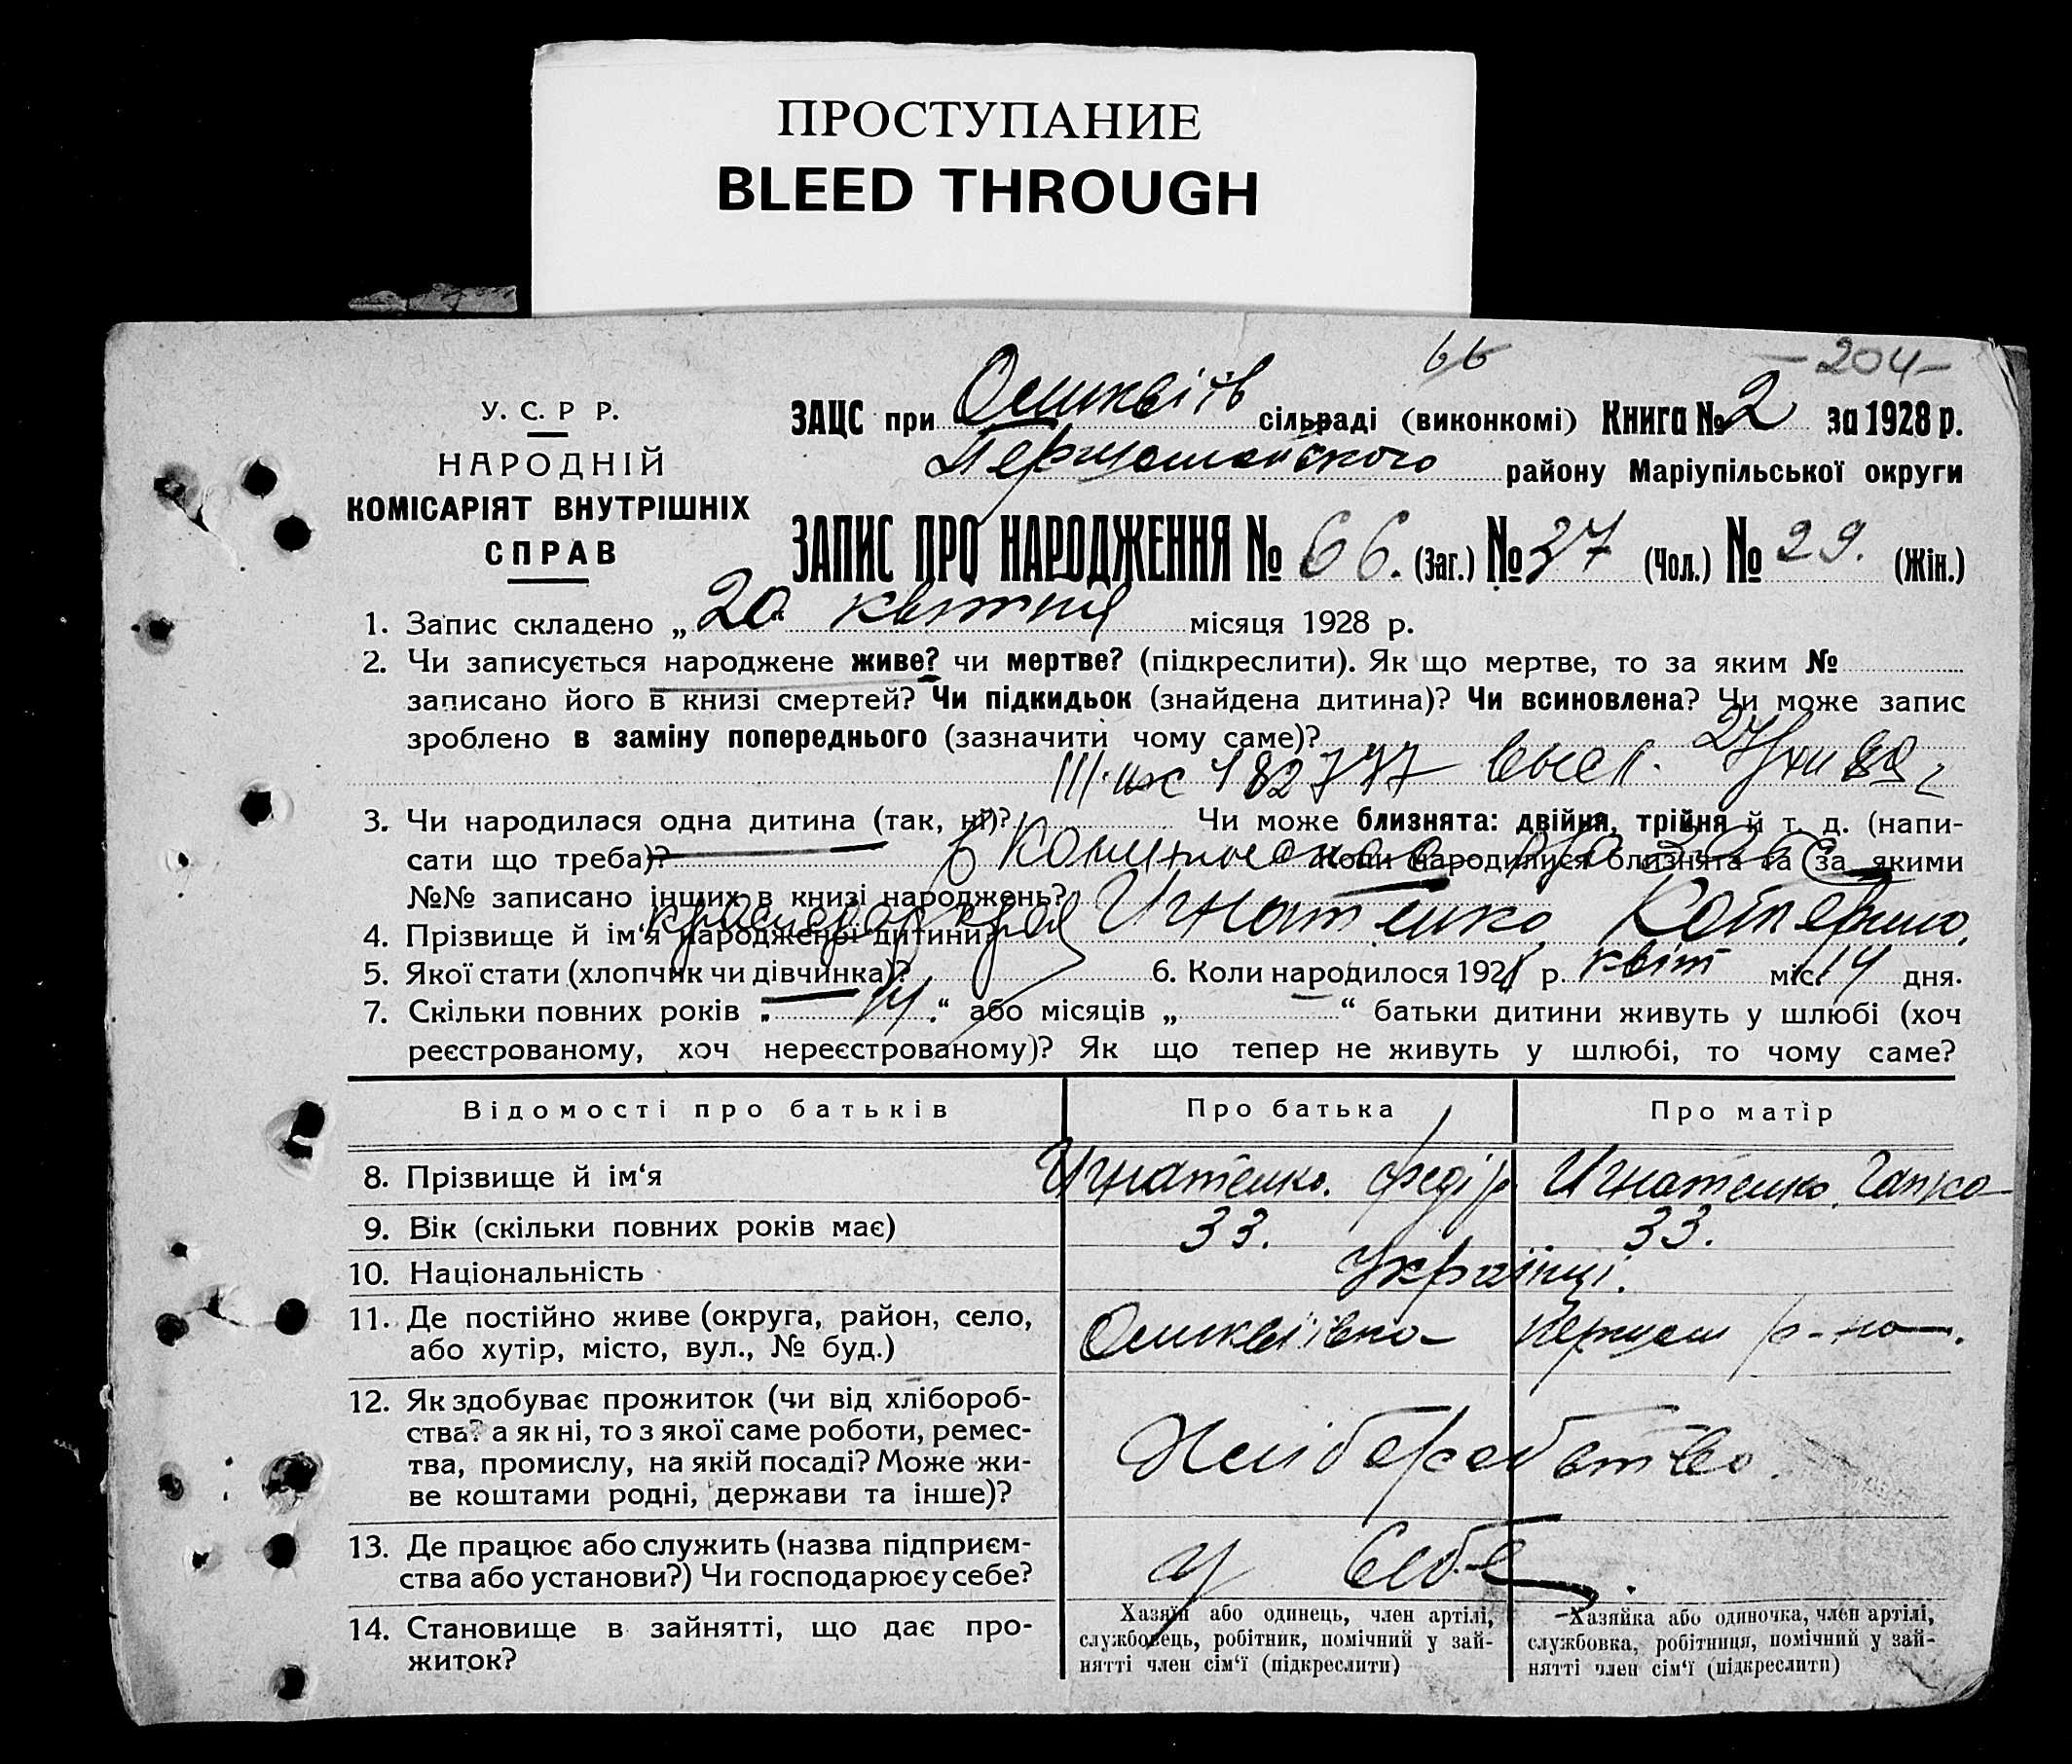 ПРОСТУПАНИЕ
BLEED THROUGH
66
-204-
У. С. Р Р.
НАРОДНІЙ
КОМІСАРІЯТ ВНУТРІШНІХ
СПРАВ
ЗАЦС при сільраді (виконкомі) Книга № 2 за 1928 р.
Першомайского району Маріупільської округи
ЗАПИС ПРО НАРОДЖЕННЯ № 66. (Заг.) № 37 (Чол.) № 29. (Жін.)
1. Запис складено „20" квітня місяця 1928 р.
2. Чи записується народжене живе? чи мертве? (підкреслити). Як що мертве, то за яким №
записано його в книзі смертей? Чи підкидьок (знайдена дитина)? Чи всиновлена? Чи може запис
зроблено в заміну попереднього (зазначити чому саме)?
182777
3. Чи народилася одна дитина (так, ні)? Чи може близнята: двійня, трійня й т. д. (напи-
сати що треба)? Коли народилися близнята та за якими
№№ записано інших в книзі народжень?
4. Прізвище й ім‘я народженої дитини: Игнатенко Катерина.
5. Якої стати (хлопчик чи дівчинка)? 6. Коли народилося 1928 р. квіт міс. 14 дня.
7. Скільки повних років „14“ або місяців „ — “ батьки дитини живуть у шлюбі (хоч
реєстрованому, хоч нереєстрованому)? Як що тепер не живуть у шлюбі, то чому саме?
Відомості про батьків Про батька Про матір
8. Прізвище й ім‘я Игнатенко. Федір Игнатенко. Гапка
9. Вік (скільки повних років має) 33. 33.
10. Національність Українці.
11. Де постійно живе (округа, район, село,
або хутір, місто, вул., № буд.) р-на
12. Як здобуває прожиток (чи від хлібороб-
ства? а як ні, то з якої саме роботи, ремес-
тва, промислу, на якій посаді? Може жи-
ве коштами родні, держави та інше)?
Хліборобство.
13. Де працює або служить (назва підприєм-
ства або установи?) Чи господарює у себе?
у себе.
14. Становище в зайнятті, що дає про-
житок?
Хазяїн або одинець, член артілі,
службовець, робітник, помічний у зай-
нятті член сім‘ї (підкреслити)
Хазяйка або одиночка, член артілі,
службовка, робітниця, помічний у зай-
нятті член сім‘ї (підкреслити)